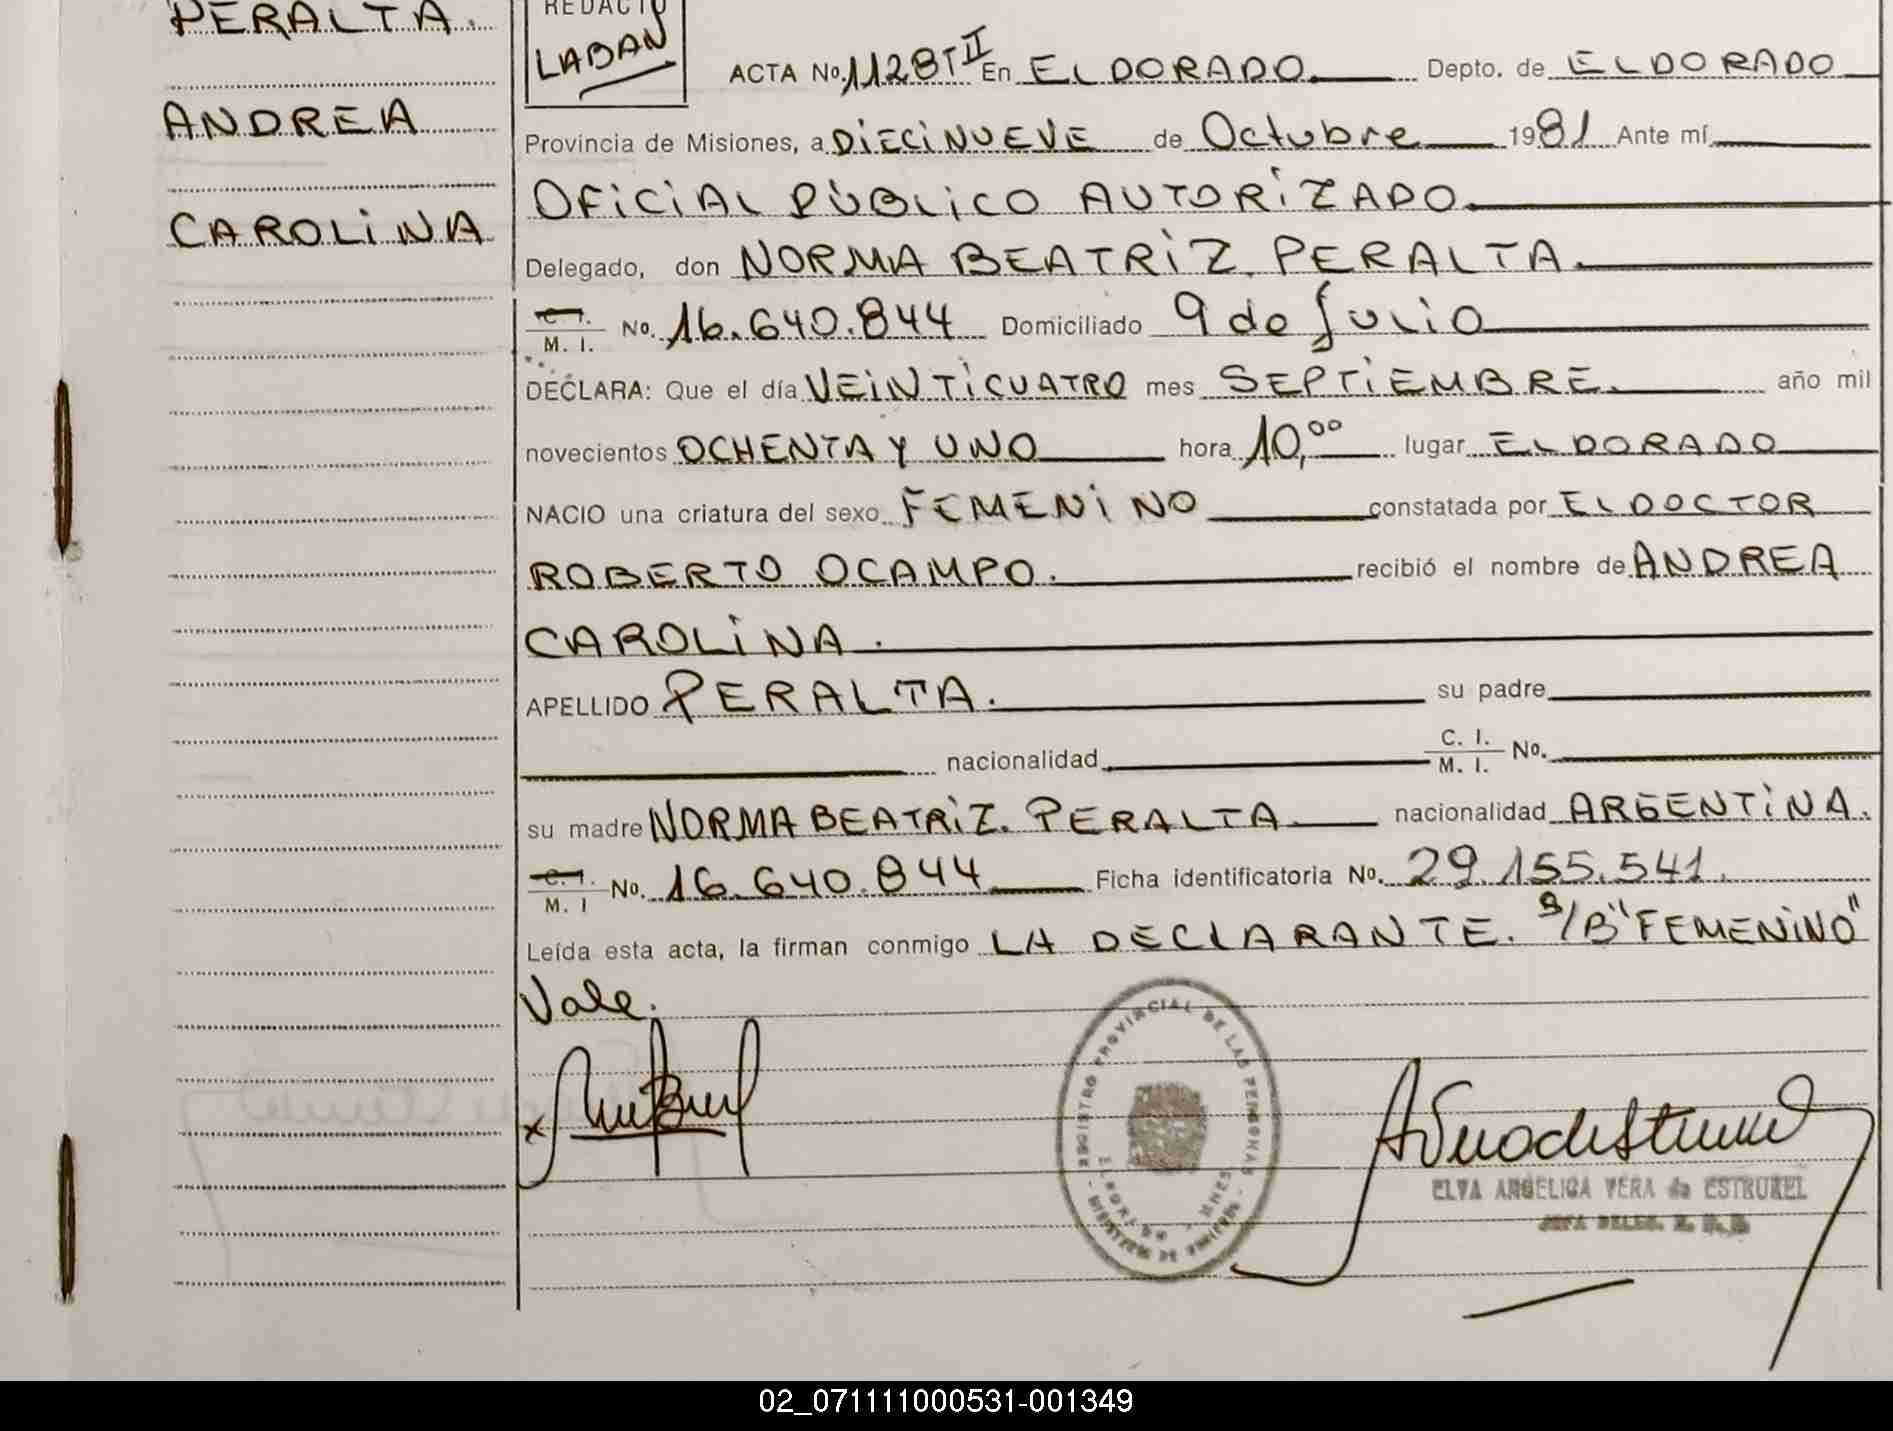 PERALTA.
ANDREA
CAROLINA
REDACTO
LABAN
ACTA No. 1128 T II En ELDORADO. Depto. de ELDORADO
Provincia de Misiones, a DIECINUEVE de Octubre 1981 Ante mí
OFICIAL PÚBLICO AUTORIZADO.
Delegado, don NORMA BEATRIZ PERALTA.
C. I. / M. I. No. 16.640.844 Domiciliado 9 de Julio
DECLARA: Que el día VEINTICUATRO mes SEPTIEMBRE. año mil
novecientos OCHENTA Y UNO hora 10,00 lugar ELDORADO
NACIO una criatura del sexo FEMENINO constatada por EL DOCTOR
ROBERTO OCAMPO. recibió el nombre de ANDREA
CAROLINA.
APELLIDO PERALTA. su padre
nacionalidad C. I. / M. I. No.
su madre NORMA BEATRIZ PERALTA nacionalidad ARGENTINA.
C. I. / M. I No. 16.640.844 Ficha identificatoria No. 29.155.541.
Leída esta acta, la firman conmigo LA DECLARANTE. S/B "FEMENINO"
Vale.
REGISTRO PROVINCIAL DE LAS PERSONAS
ELVA ANGELICA VERA de ESTRUBEL
JEFA DELEG.
02_071111000531-001349